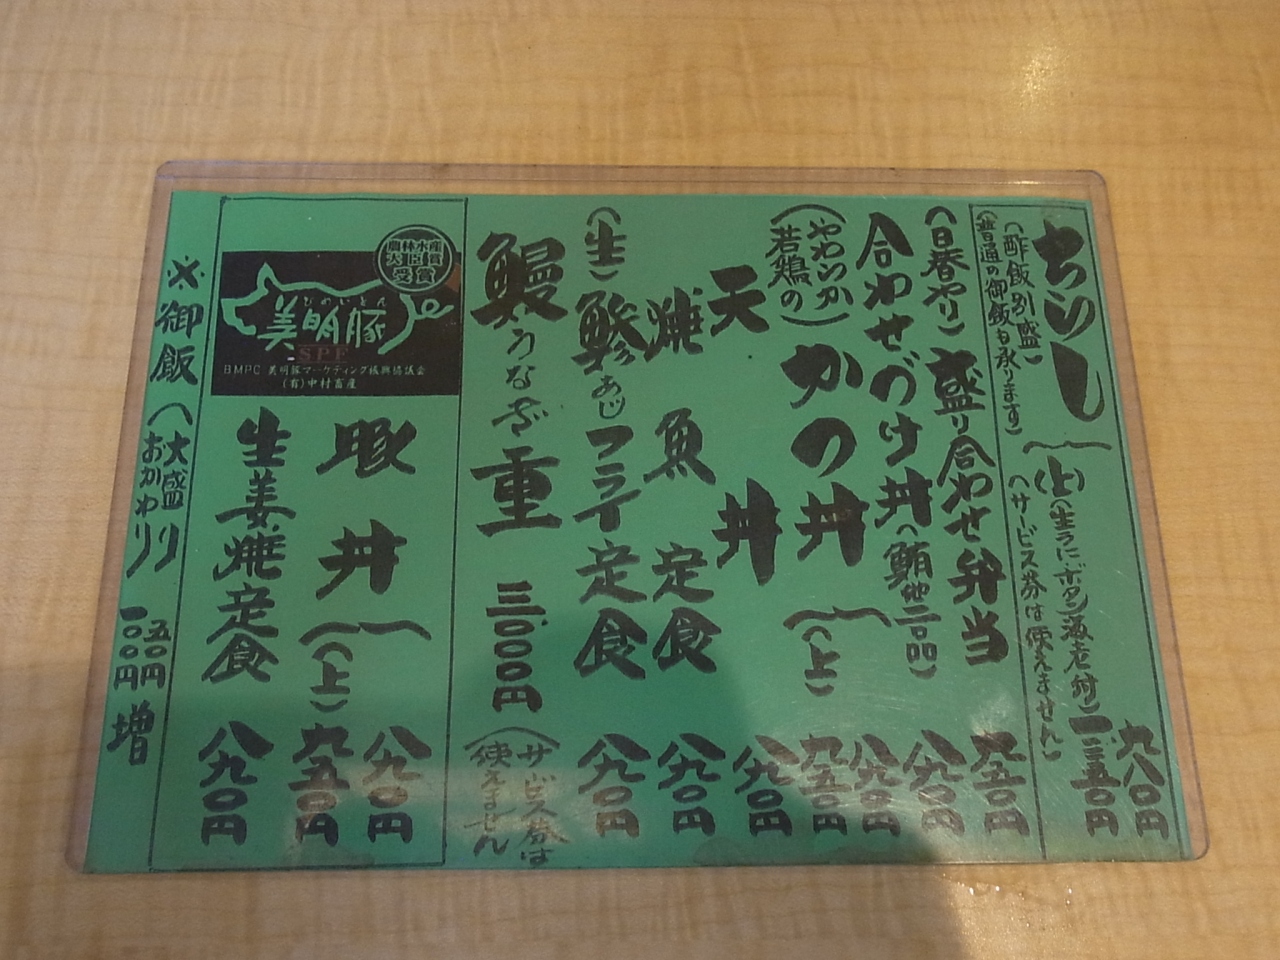 ちらし
(酢飯別盛)
(普通の御飯も承ります)
九八〇円
(上)(生うに・ボタン海老付)
一三五〇円
(サービス券は使えません)
(日替わり)盛り合わせ弁当 九五〇円
合わせづけ丼(鮪他二品) 八九〇円
(やわらか若鶏の)かの丼 八九〇円
(上) 九五〇円
天丼 八九〇円
焼魚定食 八九〇円
(生)鯵あじフライ定食 八九〇円
鰻うなぎ重 三、〇〇〇円
(サービス券は使えません)
農林水産大臣賞受賞
びめいとん
美明豚
SPF
BMPC 美明豚マーケティング振興協議会
(有)中村畜産
豚丼 八九〇円
(上) 九五〇円
生姜焼定食 八九〇円
※御飯(大盛り 五〇円
おかわり 一〇〇円 増